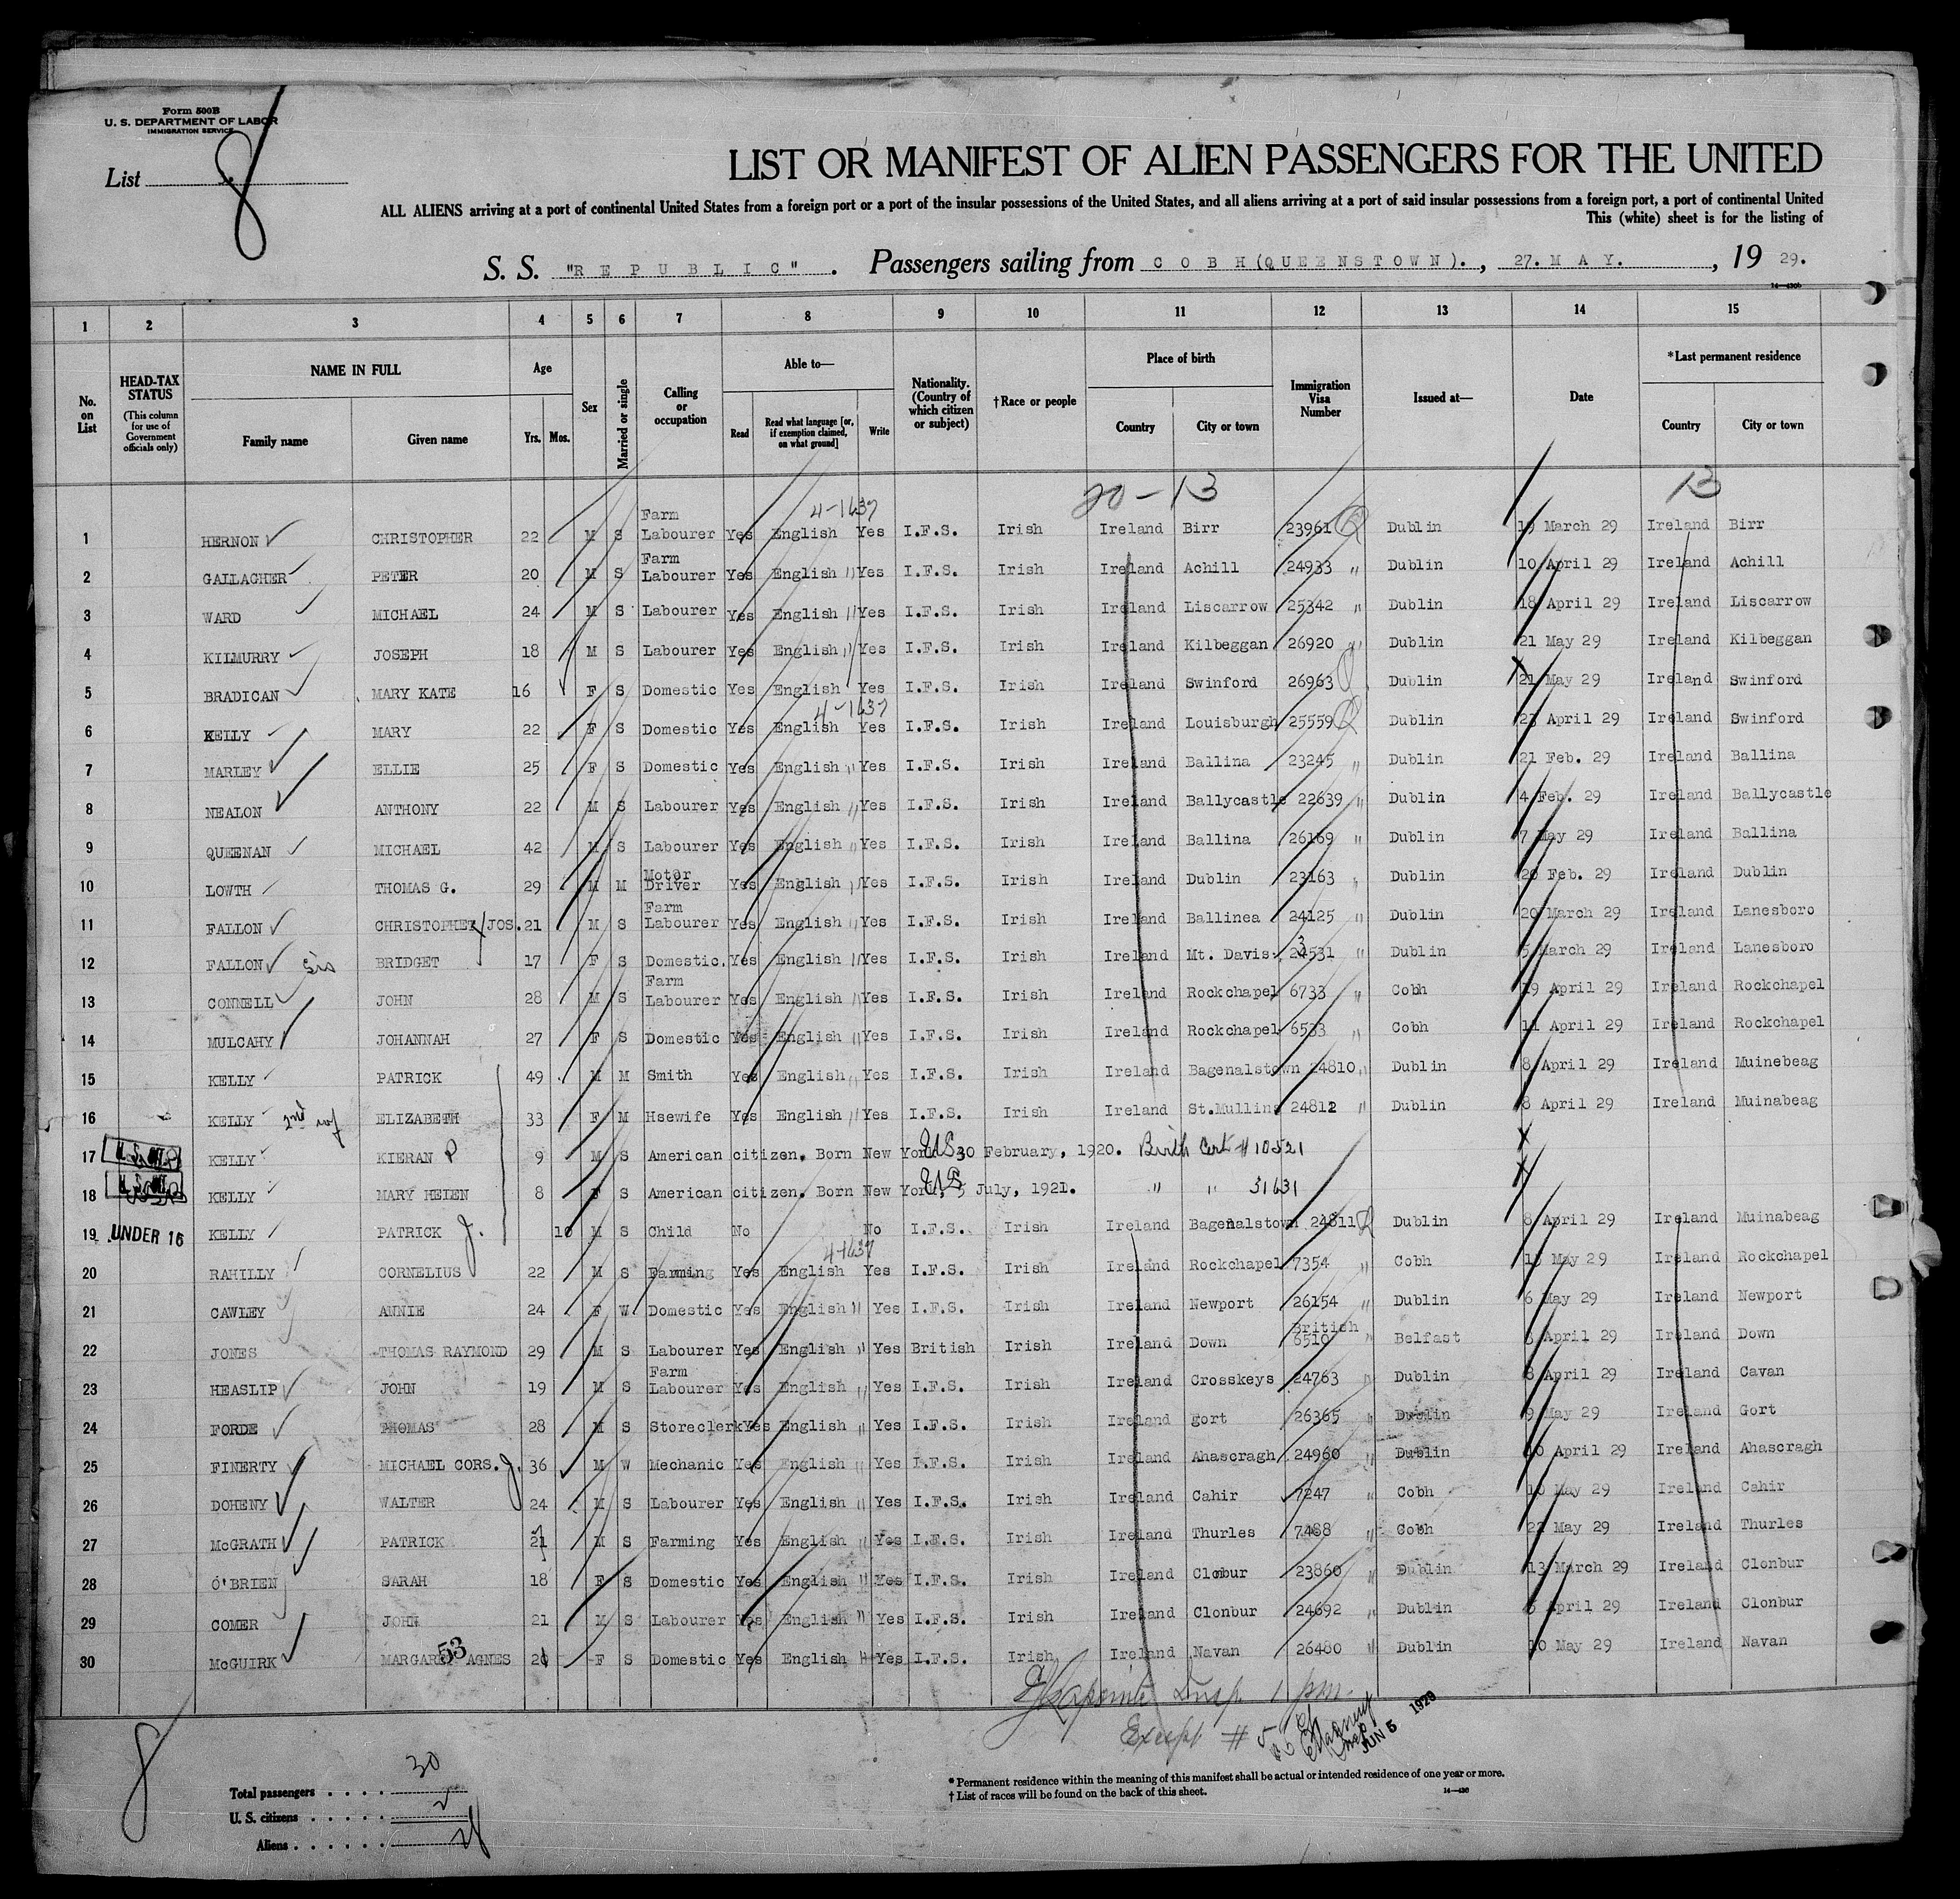 Form 500B
U. S. DEPARTMENT OF LABOR
IMMIGRATION SERVICE
List 8
LIST OR MANIFEST OF ALIEN PASSENGERS FOR THE UNITED
ALL ALIENS arriving at a port of continental United States from a foreign port or a port of the insular possessions of the United States, and all aliens arriving at a port of said insular possessions from a foreign port, a port of continental United
This (white) sheet is for the listing of
S. S. "REPUBLIC". Passengers sailing from COBH(QUEENSTOWN)., 27. MAY., 19 29.
1 2 3 4 5 6 7 8 9 10 11 12 13 14 15
No. on List
HEAD-TAX STATUS (This column for use of Government officials only)
NAME IN FULL
Family name Given name
Age
Yrs. Mos.
Sex
Married or single
Calling or occupation
Able to—
Read Read what language [or, if exemption claimed, on what ground] Write
Nationality. (Country of which citizen or subject)
†Race or people
Place of birth
Country City or town
Immigration Visa Number
Issued at—
Date
*Last permanent residence
Country City or town
20-13 13
4-1637
1 HERNON CHRISTOPHER 22 M S Farm Labourer Yes English Yes I.F.S. Irish Ireland Birr 23961 Dublin 19 March 29 Ireland Birr
2 GALLAGHER PETER 20 M S Farm Labourer Yes English " Yes I.F.S. Irish Ireland Achill 24933 " Dublin 10 April 29 Ireland Achill
3 WARD MICHAEL 24 M S Labourer Yes English " Yes I.F.S. Irish Ireland Liscarrow 25342 " Dublin 18 April 29 Ireland Liscarrow
4 KILMURRY JOSEPH 18 M S Labourer Yes English " Yes I.F.S. Irish Ireland Kilbeggan 26920 " Dublin 21 May 29 Ireland Kilbeggan
5 BRADICAN MARY KATE 16 F S Domestic Yes English Yes I.F.S. Irish Ireland Swinford 26963 Dublin 21 May 29 Ireland Swinford
4-1637
6 KELLY MARY 22 F S Domestic Yes English Yes I.F.S. Irish Ireland Louisburgh 25559 Dublin 23 April 29 Ireland Swinford
7 MARLEY ELLIE 25 F S Domestic Yes English " Yes I.F.S. Irish Ireland Ballina 23245 " Dublin 21 Feb. 29 Ireland Ballina
8 NEALON ANTHONY 22 M S Labourer Yes English " Yes I.F.S. Irish Ireland Ballycastle 22639 " Dublin 4 Feb. 29 Ireland Ballycastle
9 QUEENAN MICHAEL 42 M S Labourer Yes English " Yes I.F.S. Irish Ireland Ballina 26169 " Dublin 7 May 29 Ireland Ballina
10 LOWTH THOMAS G. 29 M M Motor Driver Yes English " Yes I.F.S. Irish Ireland Dublin 23163 " Dublin 20 Feb. 29 Ireland Dublin
11 FALLON CHRISTOPHER JOS. 21 M S Farm Labourer Yes English " Yes I.F.S. Irish Ireland Ballinea 24125 " Dublin 20 March 29 Ireland Lanesboro
12 FALLON sis BRIDGET 17 F S Domestic. Yes English " Yes I.F.S. Irish Ireland Mt. Davis. 24531 3 " Dublin 5 March 29 Ireland Lanesboro
13 CONNELL JOHN 28 M S Farm Labourer Yes English " Yes I.F.S. Irish Ireland Rockchapel 6733 " Cobh 19 April 29 Ireland Rockchapel
14 MULCAHY JOHANNAH 27 F S Domestic Yes English " Yes I.F.S. Irish Ireland Rockchapel 6533 " Cobh 11 April 29 Ireland Rockchapel
15 KELLY PATRICK 49 M M Smith Yes English " Yes I.F.S. Irish Ireland Bagenalstown 24810 " Dublin 8 April 29 Ireland Muinebeag
16 KELLY 2nd wf ELIZABETH 33 F M Hsewife Yes English " Yes I.F.S. Irish Ireland St.Mullins 24812 " Dublin 8 April 29 Ireland Muinabeag
17 KELLY KIERAN P 9 M S American citizen. Born New York. US 30 February, 1920. Birth Cert # 10521
18 KELLY MARY HELEN 8 F S American citizen. Born New York, US 5 July, 1921. " " 31631
19 UNDER 16 KELLY PATRICK J. 10 M S Child No No I.F.S. Irish Ireland Bagenalstown 24811 Dublin 8 April 29 Ireland Muinabeag
4-1637
20 RAHILLY CORNELIUS 22 M S Farming Yes English Yes I.F.S. Irish Ireland Rockchapel 7354 " Cobh 15 May 29 Ireland Rockchapel
21 CAWLEY ANNIE 24 F W Domestic Yes English " Yes I.F.S. Irish Ireland Newport 26154 " Dublin 6 May 29 Ireland Newport
22 JONES THOMAS RAYMOND 29 M S Labourer Yes English " Yes British Irish Ireland Down British 6510 " Belfast April 29 Ireland Down
23 HEASLIP JOHN 19 M S Farm Labourer Yes English " Yes I.F.S. Irish Ireland Crosskeys 24763 " Dublin 8 April 29 Ireland Cavan
24 FORDE THOMAS 28 M S Storeclerk Yes English " Yes I.F.S. Irish Ireland gort 26365 " Dublin 9 May 29 Ireland Gort
25 FINERTY MICHAEL CORS. J. 36 M W Mechanic Yes English " Yes I.F.S. Irish Ireland Ahascragh 24960 " Dublin 10 April 29 Ireland Ahascragh
26 DOHENY WALTER 24 M S Labourer Yes English " Yes I.F.S. Irish Ireland Cahir 7247 " Cobh May 29 Ireland Cahir
27 McGRATH PATRICK 21 M S Farming Yes English " Yes I.F.S. Irish Ireland Thurles 7468 " Cobh 22 May 29 Ireland Thurles
28 O'BRIEN SARAH 18 F S Domestic Yes English " Yes I.F.S. Irish Ireland Clonbur 23860 " Dublin 13 March 29 Ireland Clonbur
29 COMER JOHN 21 M S Labourer Yes English " Yes I.F.S. Irish Ireland Clonbur 24692 " Dublin April 29 Ireland Clonbur
30 McGUIRK MARGARET AGNES 53 20 F S Domestic Yes English " Yes I.F.S. Irish Ireland Navan 26480 " Dublin 10 May 29 Ireland Navan
Insp. 1 pm.
Except # 5
JUN 5 1929
8
Total passengers 30
U. S. citizens 2
Aliens
* Permanent residence within the meaning of this manifest shall be actual or intended residence of one year or more.
† List of races will be found on the back of this sheet.